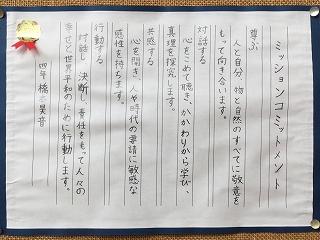 ミッションコミットメント
尊ぶ
人と自分、物と自然のすべてに敬意を
もって向き合います。
対話する
心をこめて聴き、かかわりから学び、
真理を探究します。
共感する
心を開き、人や時代の要請に敏感な
感性を持ちます。
行動する
対話し、決断し、責任をもって人々の
幸せと世界平和のために行動します。
四年 橋 昊音